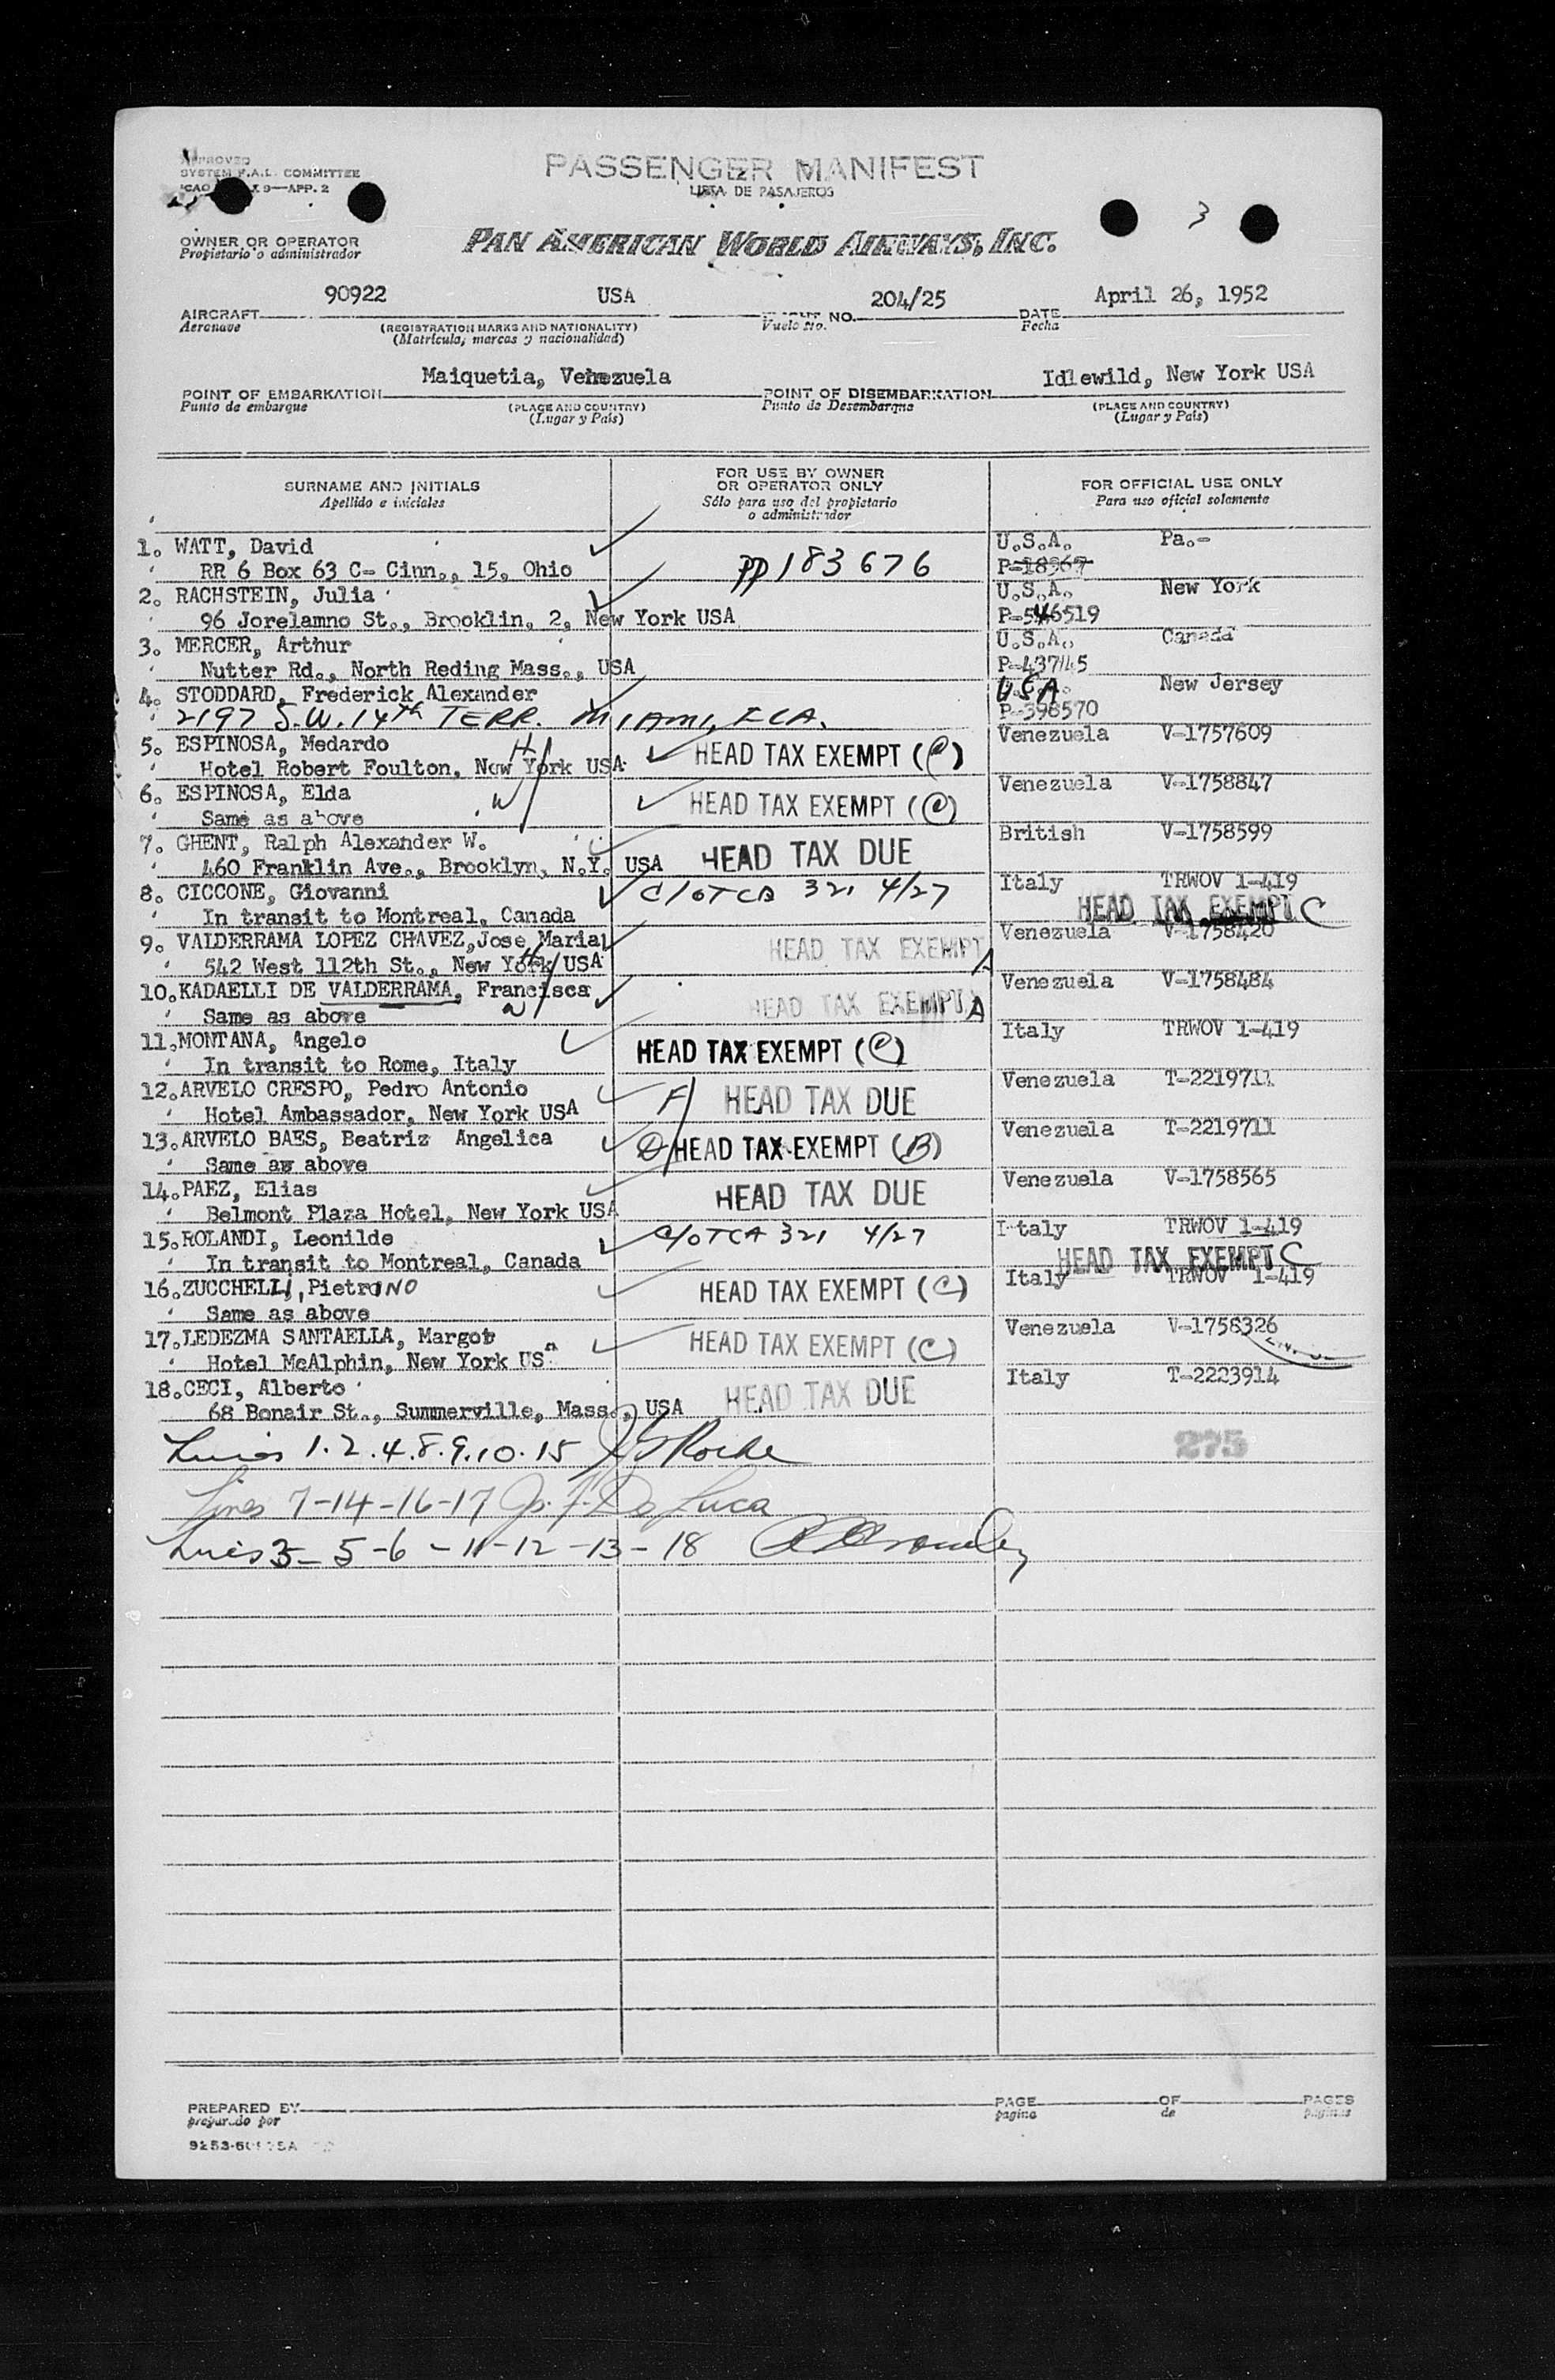 APPROVED
SYSTEM F.A.L. COMMITTEE
ICAO 9—APP. 2
PASSENGER MANIFEST
LISTA DE PASAJEROS
3
OWNER OR OPERATOR
Propietario o administrador
PAN AMERICAN WORLD AIRWAYS, INC.
90922 USA 204/25 April 26, 1952
AIRCRAFT NO. DATE
Aeronave (REGISTRATION MARKS AND NATIONALITY) Vuelo No. Fecha
(Matrícula, marcas y nacionalidad)
Maiquetia, Venezuela Idlewild, New York USA
POINT OF EMBARKATION POINT OF DISEMBARKATION
Punto de embarque (PLACE AND COUNTRY) Punto de Desembarque (PLACE AND COUNTRY)
(Lugar y País) (Lugar y País)
SURNAME AND INITIALS FOR USE BY OWNER OR OPERATOR ONLY FOR OFFICIAL USE ONLY
Apellido e iniciales Sólo para uso del propietario o administrador Para uso oficial solamente
1. WATT, David U.S.A. Pa.-
RR 6 Box 63 C- Cinn., 15, Ohio PP 183676 P-18967
2. RACHSTEIN, Julia U.S.A. New York
96 Jorelamno St., Brooklin, 2, New York USA P-546519
3. MERCER, Arthur U.S.A. Canada
Nutter Rd., North Reding Mass., USA P-437145
4. STODDARD, Frederick Alexander USA New Jersey
2197 S.W. 14th TERR. MIAMI, FLA. P-398570
5. ESPINOSA, Medardo H HEAD TAX EXEMPT (C) Venezuela V-1757609
Hotel Robert Foulton, New York USA
6. ESPINOSA, Elda W HEAD TAX EXEMPT (C) Venezuela V-1758847
Same as above
7. GHENT, Ralph Alexander W. British V-1758599
460 Franklin Ave., Brooklyn, N.Y. USA HEAD TAX DUE
8. CICCONE, Giovanni C/O TCA 321 4/27 Italy TRWOV 1-419
In transit to Montreal, Canada HEAD TAX EXEMPT C
9. VALDERRAMA LOPEZ CHAVEZ, Jose Maria HEAD TAX EXEMPT A Venezuela V-1758420
542 West 112th St., New York USA H
10. KADAELLI DE VALDERRAMA, Francisca HEAD TAX EXEMPT A Venezuela V-1758484
Same as above W
11. MONTANA, Angelo HEAD TAX EXEMPT (C) Italy TRWOV 1-419
In transit to Rome, Italy
12. ARVELO CRESPO, Pedro Antonio F HEAD TAX DUE Venezuela T-2219711
Hotel Ambassador, New York USA
13. ARVELO BAES, Beatriz Angelica D HEAD TAX EXEMPT (B) Venezuela T-2219711
Same as above
14. PAEZ, Elias HEAD TAX DUE Venezuela V-1758565
Belmont Plaza Hotel, New York USA
15. ROLANDI, Leonilde C/O TCA 321 4/27 Italy TRWOV 1-419
In transit to Montreal, Canada HEAD TAX EXEMPT C
16. ZUCCHELLI, PietrINO HEAD TAX EXEMPT (C) Italy TRWOV 1-419
Same as above
17. LEDEZMA SANTAELLA, Margot HEAD TAX EXEMPT (C) Venezuela V-1758326
Hotel McAlphin, New York US
18. CECI, Alberto HEAD TAX DUE Italy T-2223914
68 Bonair St., Summerville, Mass., USA
Lines 1.2.4.8.9.10.15 Roche 275
Lines 7-14-16-17 Jos. F. De Luca
Lines 3-5-6-11-12-13-18
PREPARED BY PAGE OF PAGES
preparado por pagina de páginas